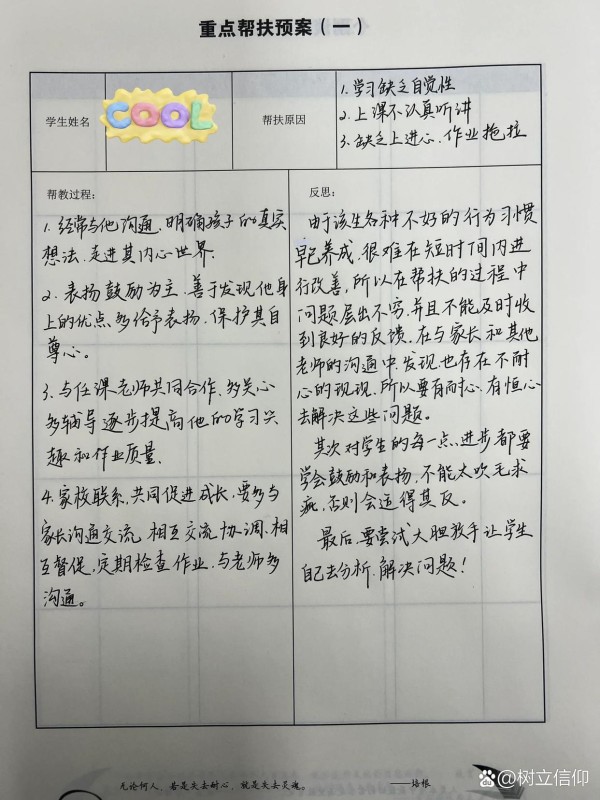 重点帮扶预案（一）
学生姓名
COOL
帮扶原因
1.学习缺乏自觉性
2.上课不认真听讲
3.缺乏上进心、作业拖拉
帮教过程:
1.经常与他沟通,明确孩子的真实
想法.走进其内心世界.
2.表扬鼓励为主.善于发现他身
上的优点多给予表扬,保护其自
尊心。
3.与任课老师共同合作、多关心
多辅导逐步提高他的学习兴
趣和作业质量.
4.家校联系,共同促进成长,要多与
家长沟通交流.相互交流、协调、相
互督促,定期检查作业.与老师多
沟通。
反思:
由于该生各种不好的行为习惯
早已养成,很难在短时间内进
行改善,所以在帮扶的过程中
问题层出不穷,并且不能及时收
到良好的反馈.在与家长和其他
老师的沟通中、发现也存在不耐
心的现现.所以要有耐心.有恒心
去解决这些问题。
其次对学生的每一点、进步都要
学会鼓励和表扬,不能太吹毛求
疵,否则会适得其反。
最后.要尝试大胆放手让学生
自己去分析.解决问题!
无论何人，若是失去耐心，就是失去灵魂。
——培根
Bai百度@树立信仰